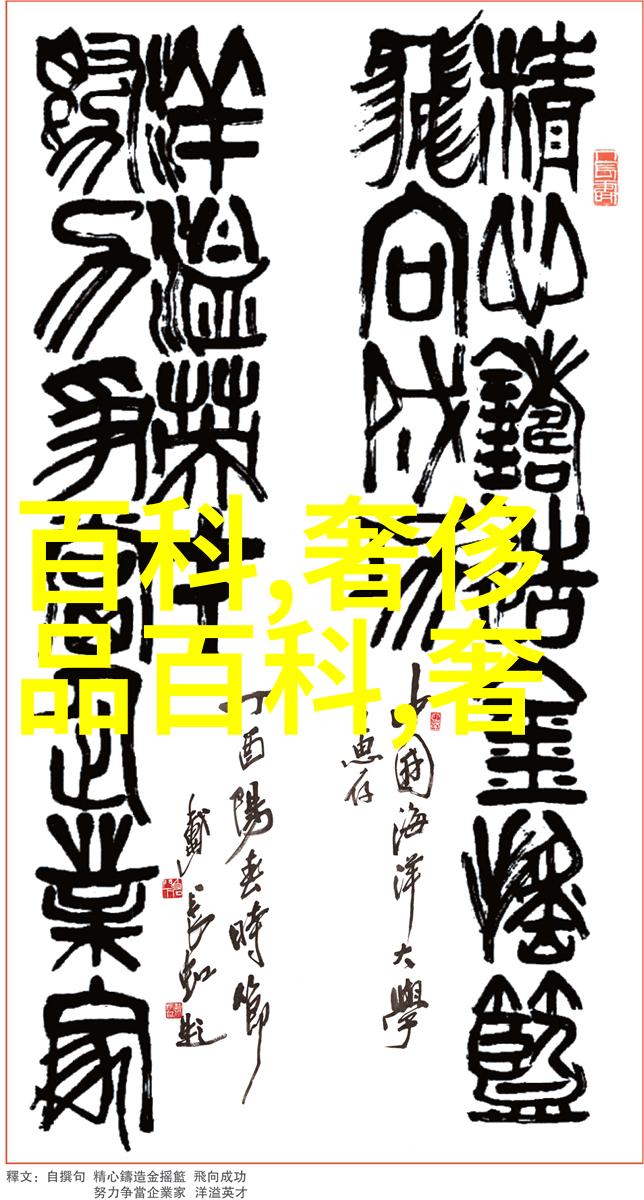 精心鑄造金摇籃
飛向成功
洋溢英才
努力争當企業家
中國海洋大學
惠存
丁酉陽春時節
戴長虹題
百科,奢侈
品百科,奢
釋文：自撰句 精心鑄造金摇籃 飛向成功
努力争當企業家 洋溢英才